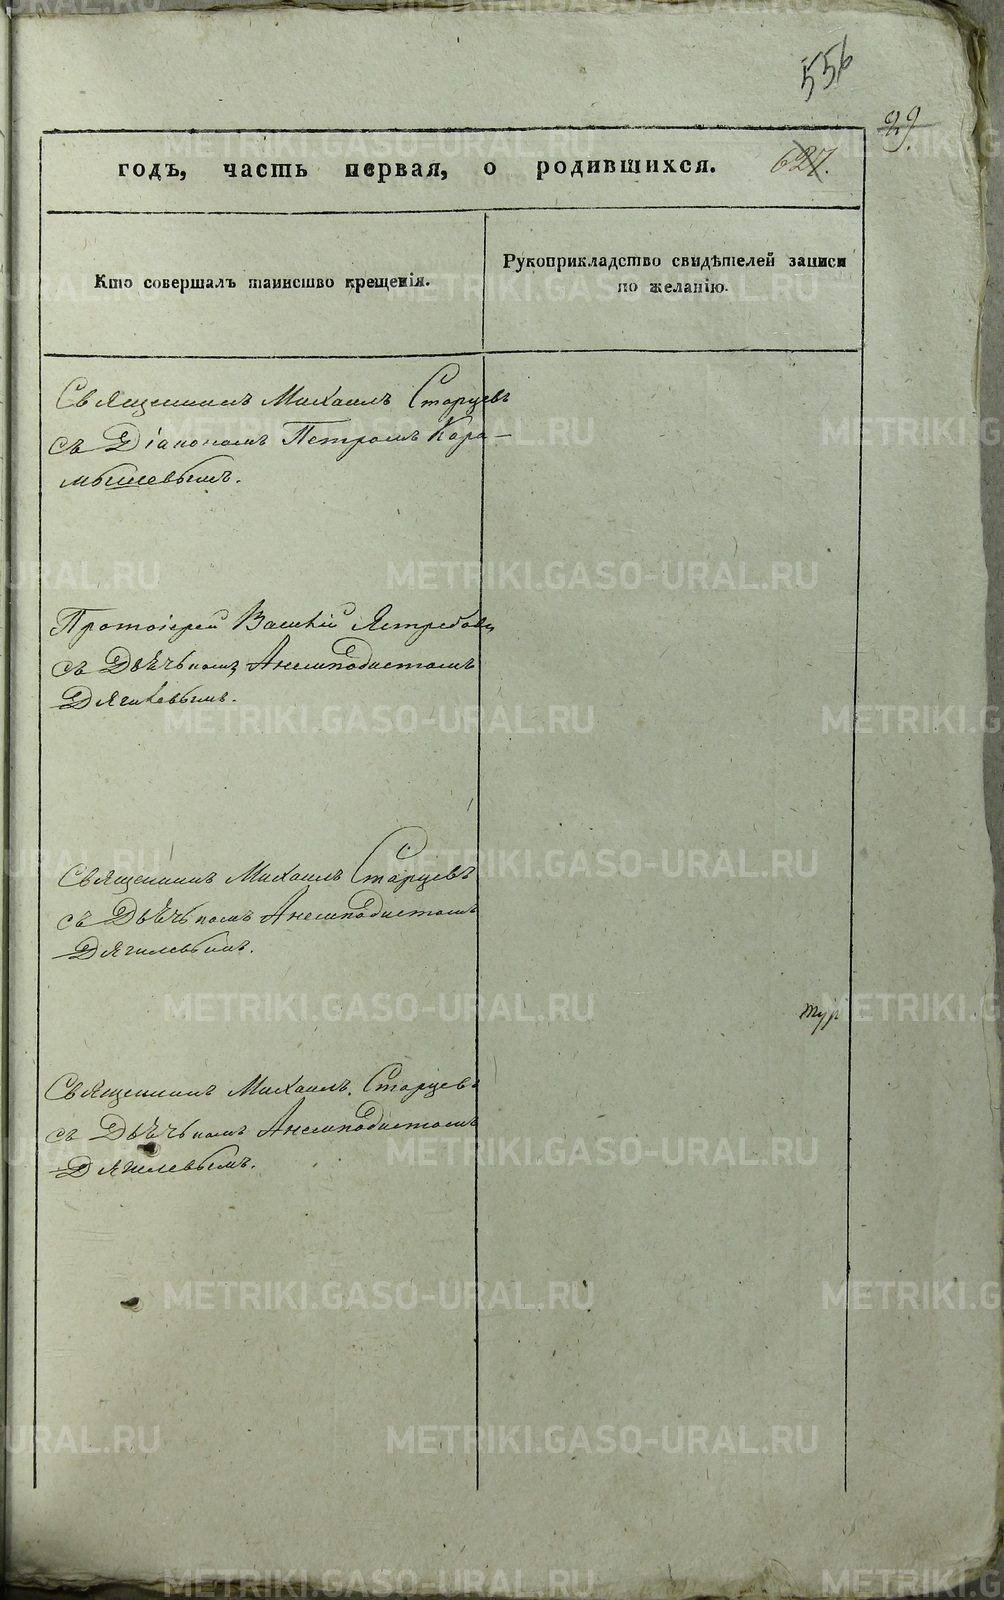 556
29.
годъ, часть первая, о родившихся. 627.
Кто совершалъ таинство крещенія.
Рукоприкладство свидѣтелей записи
по желанію.
Священникъ Михаилъ Старцевъ
съ Діакономъ Петромъ Кара-
мышевымъ.
Протоіерей Василій Ястребовъ
съ Дьячькомъ Анемподистомъ
Дягилевымъ.
Священникъ Михаилъ Старцевъ
съ Дьячькомъ Анемподистомъ
Дягилевымъ.
Священникъ Михаилъ Старцевъ
съ Дьячькомъ Анемподистомъ
Дягилевымъ.
METRIKI.GASO-URAL.RU